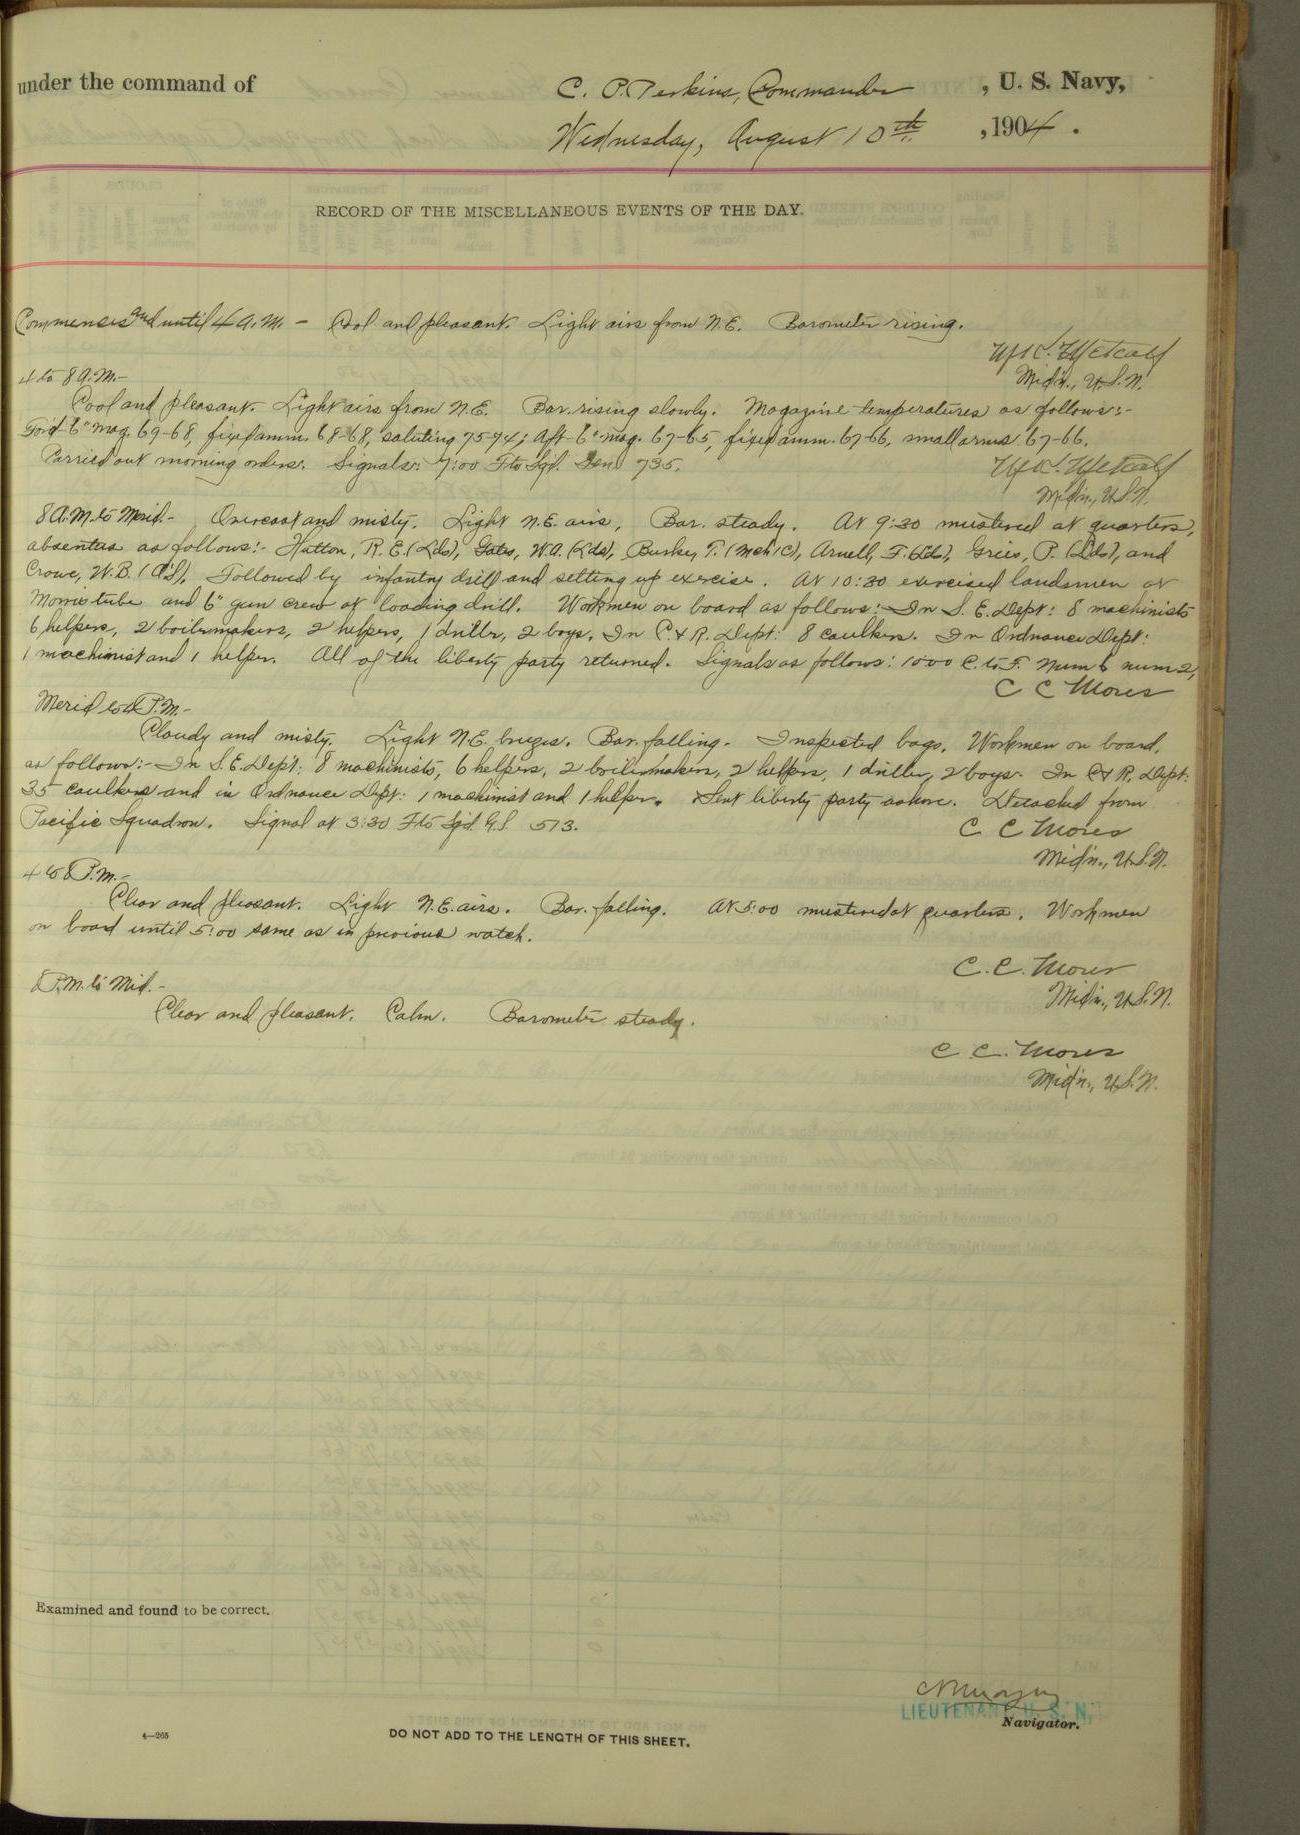 under the command of C. P. Perkins, Commander , U. S. Navy,
Wednesday, August 10th , 1904 .
RECORD OF THE MISCELLANEOUS EVENTS OF THE DAY.
Commences and until 4 A.M. - Cool and pleasant. Light airs from N.E. Barometer rising.
Metcalf
Mid'n., U.S.N.
4 to 8 A.M.-
Cool and pleasant. Light airs from N.E. Bar. rising slowly. Magazine temperatures as follows:-
For'd 6" mag. 69-68, fixed amm. 68-68, saluting 75-74; Aft 6" mag. 67-65, fixed amm. 67-66, small arms 67-66.
Carried out morning orders. Signals: 7:00 F to Sqd. Gen 735.
Metcalf
Mid'n., U.S.N.
8 A.M. to Merid.- Overcast and misty. Light N.E. airs, Bar. steady. At 9:30 mustered at quarters,
absentees as follows:- Hutton, R.E. (Lds), Gates, W.A. (Lds), Burkey, T. (Mch 1C), Arnell, F. (Lds), Greis, P. (Lds), and
Crowe, W.B. (O.S), Followed by infantry drill and setting up exercise. At 10:30 exercised landsmen at
Morris tube and 6" gun crew at loading drill. Workmen on board as follows:- In S.E. Dept: 8 machinists
6 helpers, 2 boilermakers, 2 helpers, 1 driller, 2 boys. In C & R. Dept: 8 caulkers. In Ordnance Dept:
1 machinist and 1 helper. All of the liberty party returned. Signals as follows: 10:00 C. to F. Num 6 num 2,
C C Moses
Merid to 4 P.M.-
Cloudy and misty. Light N.E. breezes. Bar. falling. Inspected bags. Workmen on board,
as follows:- In S.E. Dept: 8 machinists, 6 helpers, 2 boilermakers, 2 helpers, 1 driller, 2 boys. In C & R. Dept:
35 caulkers and in Ordnance Dept: 1 machinist and 1 helper. Sent liberty party ashore. Detached from
Pacific Squadron. Signal at 3:30 F to Sqd. G.S. 573.
C C Moses
Mid'n., U.S.N.
4 to 8 P.M.-
Clear and pleasant. Light N.E. airs. Bar. falling. At 5:00 mustered at quarters. Workmen
on board until 5:00 same as in previous watch.
C. C. Moses
Mid'n., U.S.N.
8 P.M. to Mid.-
Clear and pleasant. Calm. Barometer steady.
C. C. Moses
Mid'n., U.S.N.
Examined and found to be correct.
LIEUTENANT U. S. N.
Navigator.
4—265
DO NOT ADD TO THE LENGTH OF THIS SHEET.